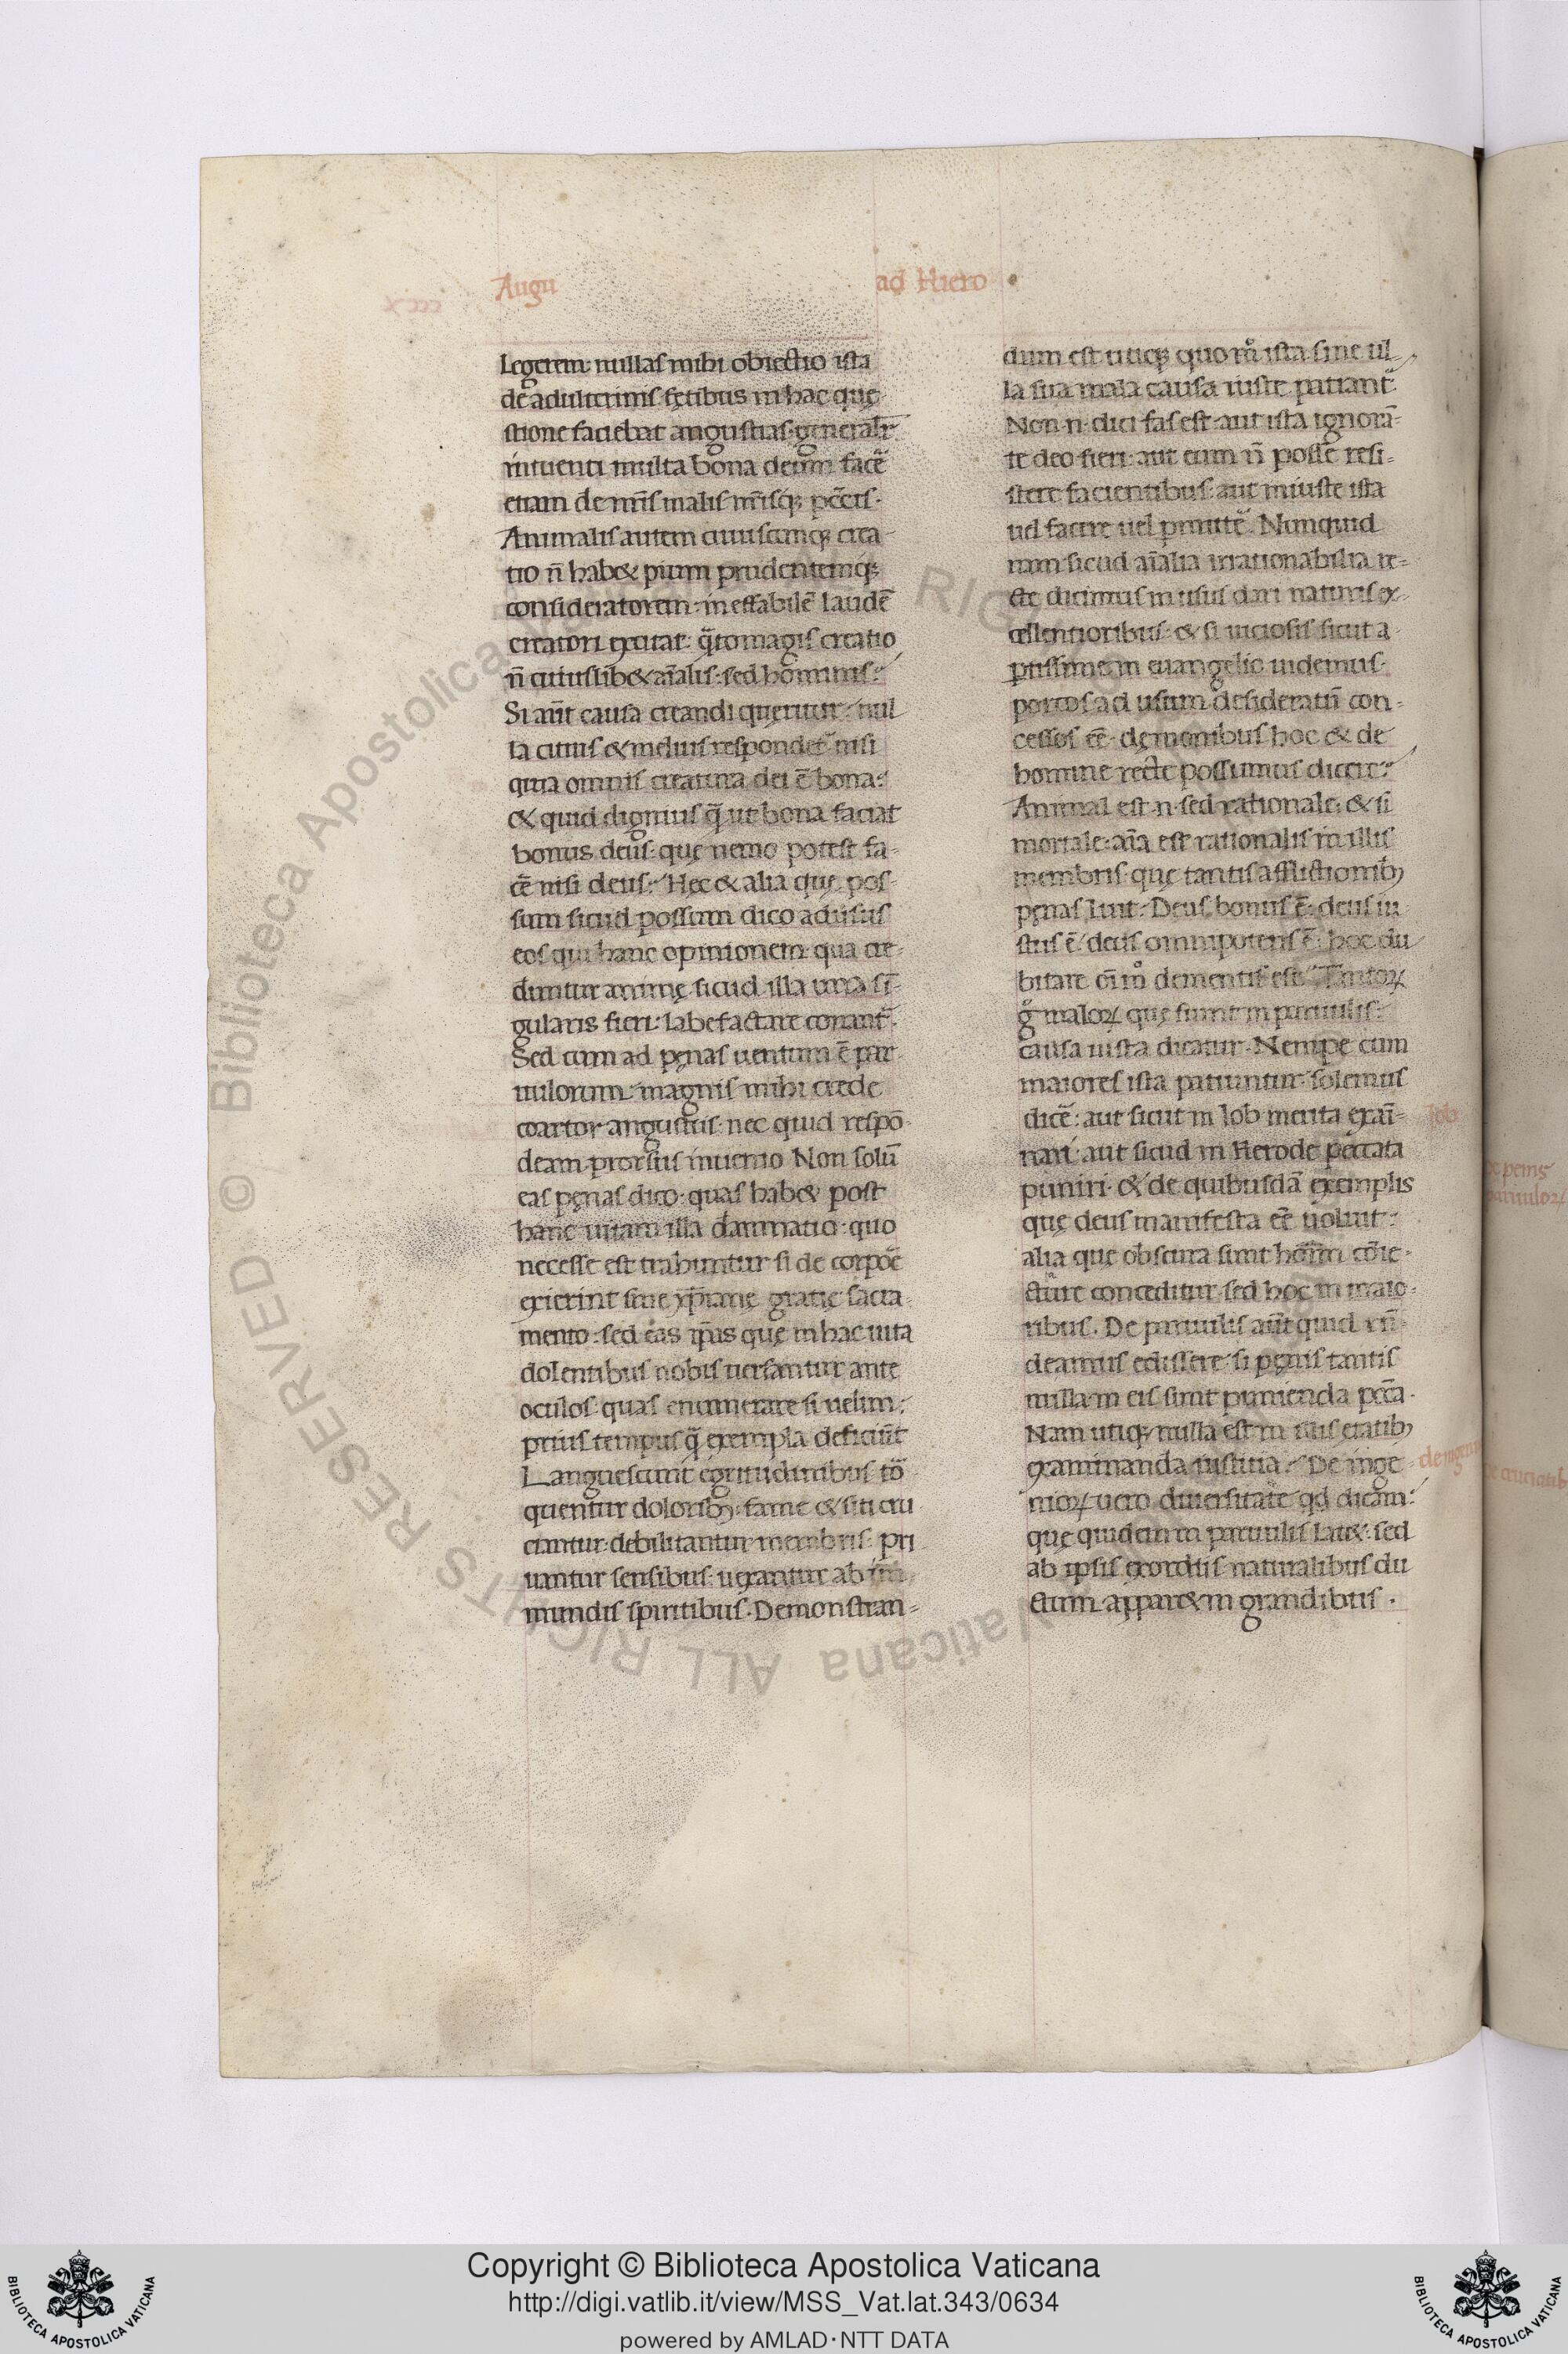 Augu ad Hiero
Legerem nullas mihi obiectio ista
de adulterinis fętibus in hac quę
stione faciebat angustias· generalr̄
intuenti multa bona deum facē
etiam de nr̄is malis nr̄isq; pc̄cis·
Animalis autem cuiuscunq; crea
tio n̄ hab& pium prudentemq;
consideratorem· ineffabilē laudē
creatori excitat· q̄tomagis creatio
n̄ cuiuslib& aīalis· sed hominis·
Si aūt causa creandi quęritur· nul
la citius & melius respondet̄ nisi
quia omnis creatura dei ē bona·
& quid dignius q̄ ut bona faciat
bonus deus· quę nemo potest fa-
cē nisi deus· Hec & alia quę pos-
sum sicud possum dico aduersus
eos qui hanc opinionem qua cre-
duntur animę sicud illa una sī-
gularis fieri· labefactare conant̄·
Sed cum ad pęnas uentum ē par
uulorum· magnis mihi crede
coartor angustiis· nec quid respō
deam prorsus inuenio Non solū
eas pęnas dico· quas hab& post
hanc uitam illa dammatio· quo
necesse est trahuntur si de corpoē
exierint sine xp̄ianę gratię sacra
mento· sed eas ip̄as quę in hac uita
dolentibus nobis uersantur ante
oculos· quas enumerare si uelim·
prius tempus q̄ exempla deficiūt
Languescunt egritudinibus tō
quentur dolorib; fame & siti cru
ciantur· debilitantur membris· pri
uantur sensibus· uexantur ab im
mundis spiritibus· Demonstran-
dum est utiq; quom̊ ista sine ul-
la sua mala causa iuste patiant̄
Non n· dici fas est· aut ista ignorā-
te deo fieri· aut eum n̄ posse resi-
stere facientibus· aut iniuste ista
uel facere uel pmittē· Nunquid
nam sicud aīalia irrationabilia re-
cte dicimus in usus dari naturis ex-
cellentioribus· & si uiciosis· sicut a
ptissime in euangelio uidemus·
porcos ad usum desideratū con-
cessos eē· dęmonibus hoc & de
homine recte possumus dicere·
Animal est n· sed rationale· & si
mortale· aīa est rationalis in illis
membris· quę tantis afflictionib;
pęnas luit· Deus bonus ē· deus iu
stus ē· deus omnipotens ē· hoc du
bitare oīm̊ dementis est· Tantoꝝ
g̊ maloꝝ quę fiunt in paruulis·
causa iusta dicatur· Nempe cum
maiores ista patiuntur· solemus
dicē· aut sicut in Iob merita exaī-
nari· aut sicud in Herode peccata
puniri· & de quibusdā exemplis
quę deus manifesta eē uoluit·
alia que obscura sunt hoīm cōie-
cture conceditur· sed hoc in maio-
ribus· De paruulis aūt quid rn̄-
deamus edissere· si pęnis tantis
nulla in eis sunt punienda pc̄ca·
Nam utiq; nulla est in illis etatib;
examinanda iustitia· De inge
nioꝝ uero diuersitate qd dicam·
quę quidem in paruulis lat&· sed
ab ipsis exordiis naturalibus du
ctum· appar& in grandibus·
Iob
de inge
Copyright © Biblioteca Apostolica Vaticana
http://digi.vatlib.it/view/MSS_Vat.lat.343/0634
powered by AMLAD·NTT DATA
BIBLIOTECA APOSTOLICA VATICANA
BIBLIOTECA APOSTOLICA VATICANA